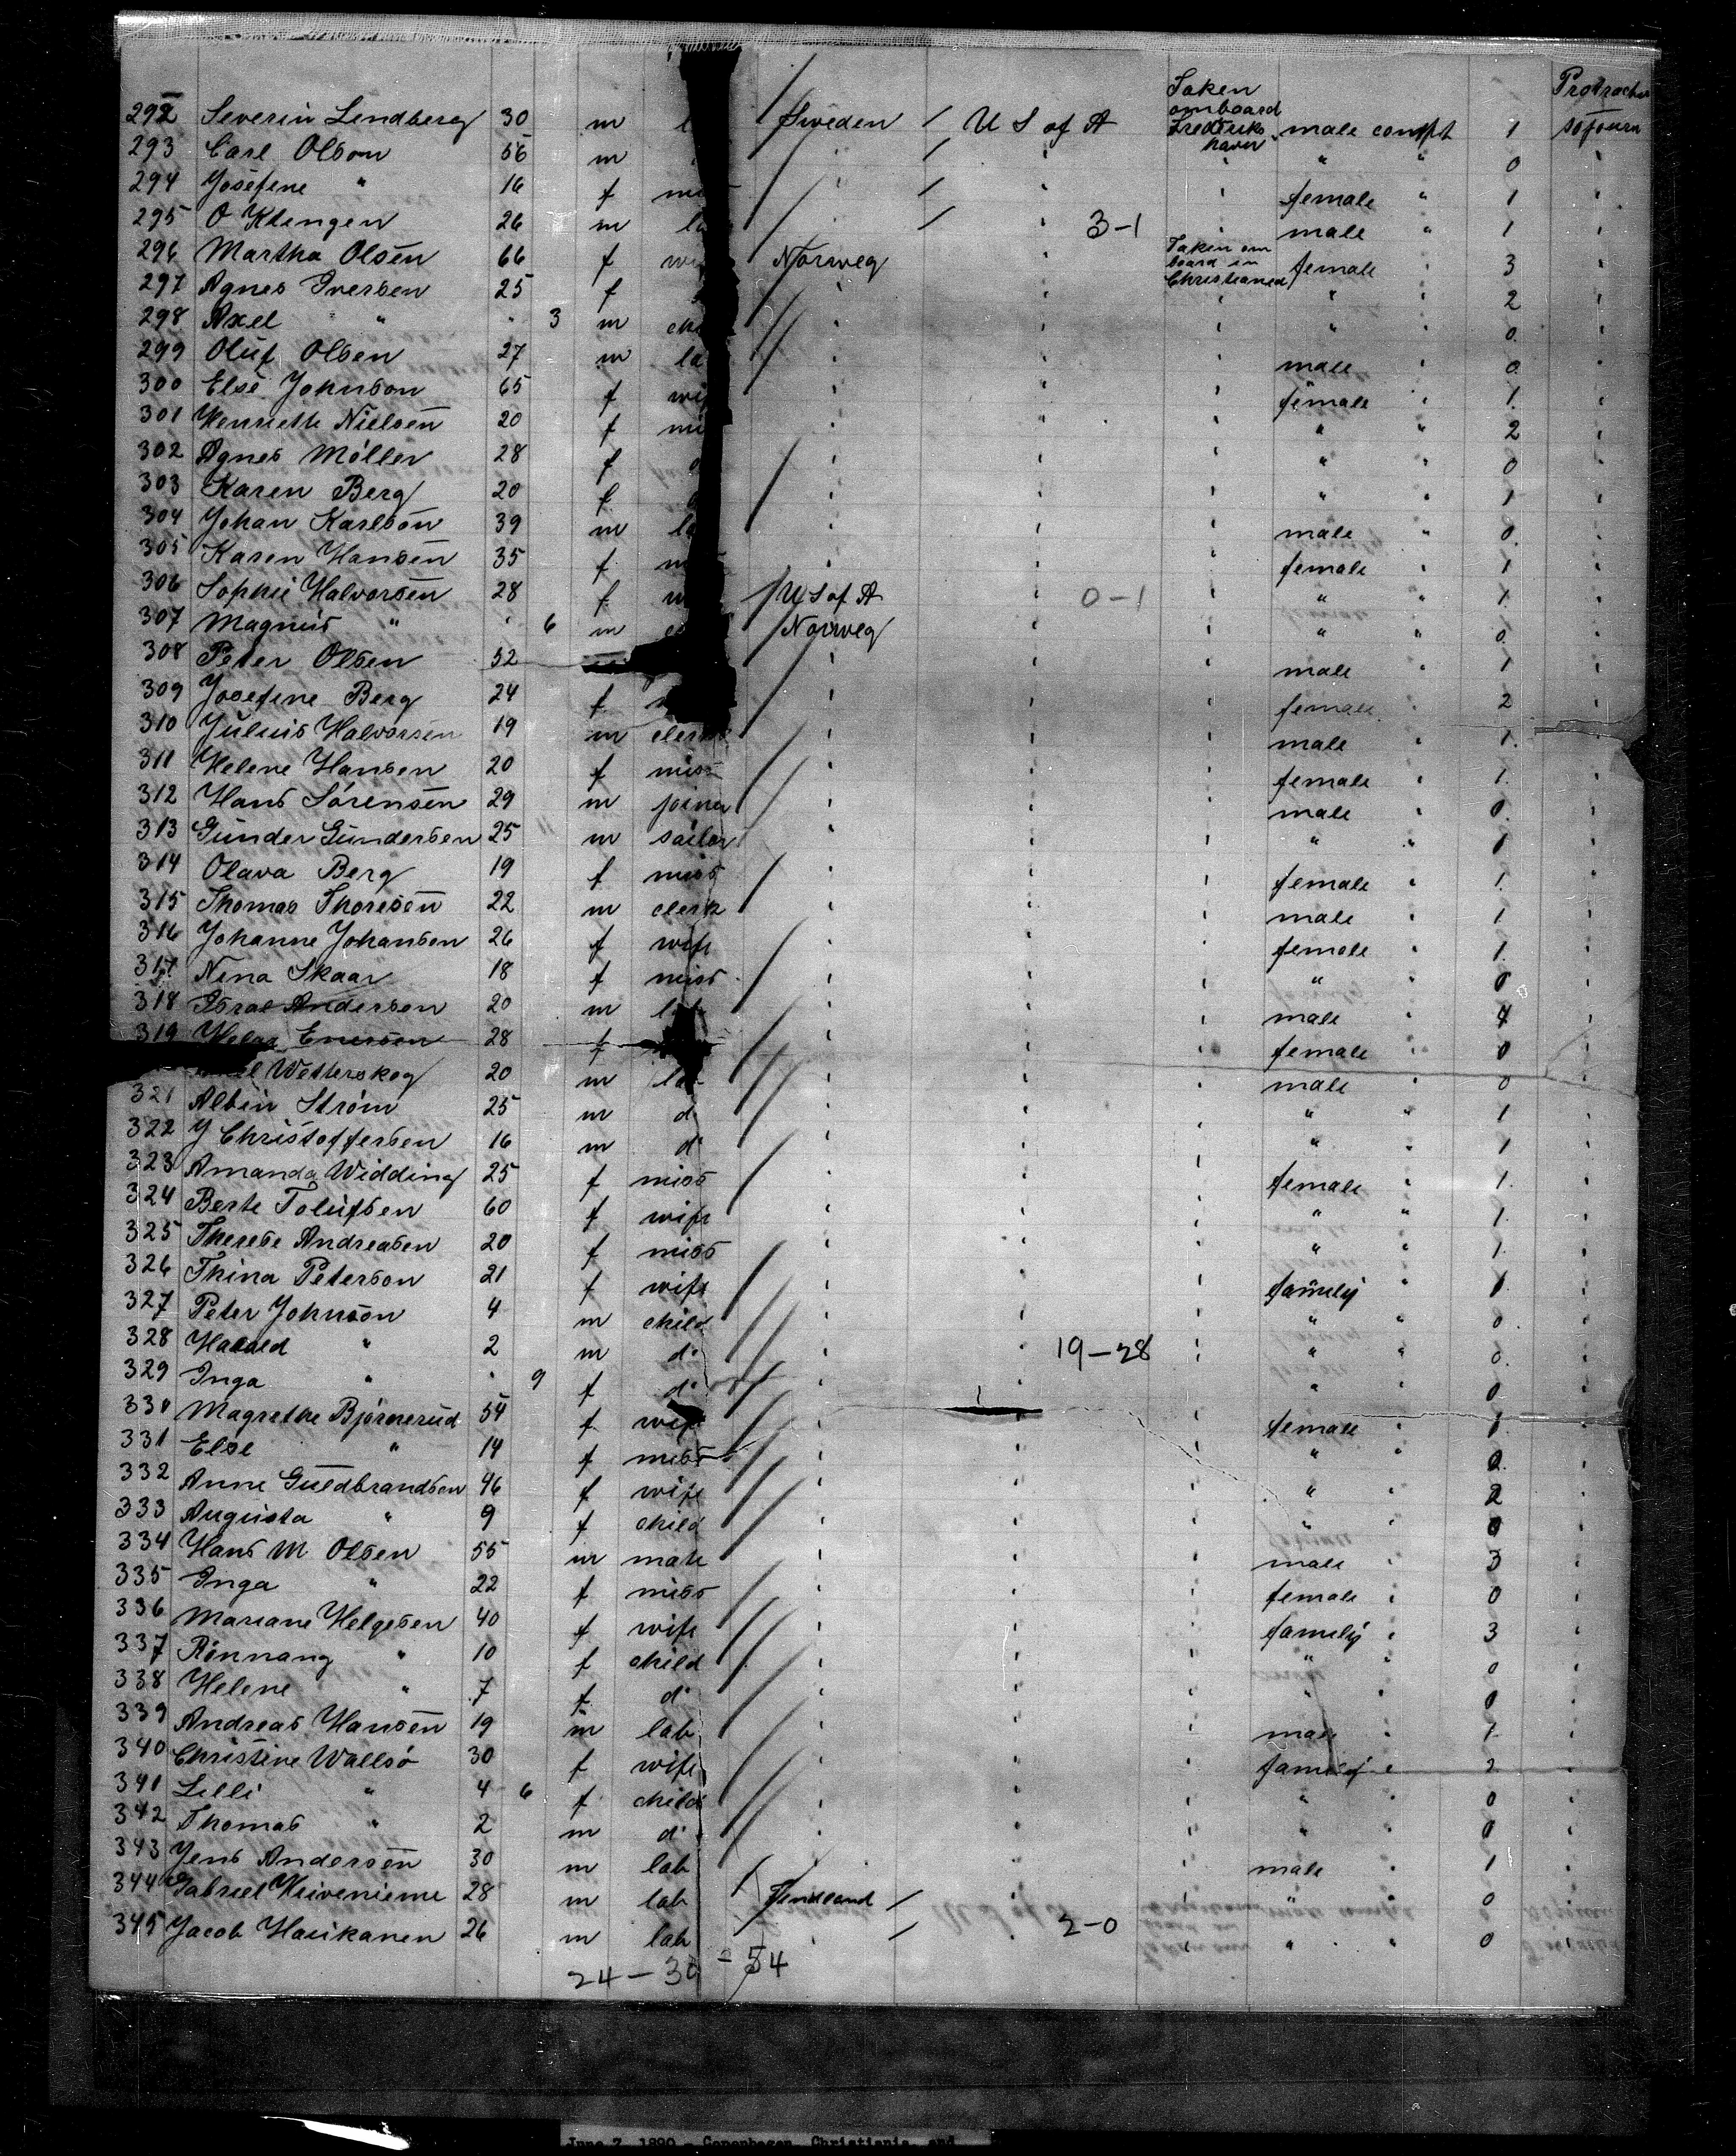 Taken Protracted
292 Severin Lindberg 30 m l Sweden / U S of A onboard Frederikshavn male compt 1 sojourn
293 Carl Olson 56 m " / " " " " 0 "
294 Josefine " 16 f mi " / " " female " 1 "
295 O Klingen 26 m la " / " 3-1 " male " 1 "
296 Martha Olsen 66 f wi Norweg " Taken on board in Christiansd female " 3 "
297 Agnes Iversen 25 f " " " " " 2 "
298 Axel " " 3 m chi " " " " " 0 "
299 Oluf Olsen 27 m la " " " male " 0 "
300 Else Johnson 65 f wif " " " female " 1 "
301 Henriette Nielsen 20 f mi " " " " " 2 "
302 Agnes Möller 28 f d " " " " " 0 "
303 Karen Berg 20 f d " " " " " 1 "
304 Johan Karlson 39 m la " " " male " 0 "
305 Karen Hansen 35 f " " " female " 1 "
306 Sophie Halvorsen 28 f U S of A " 0-1 " " " 1 "
307 Magnus " " 6 m Norweg " " " " 0 "
308 Peter Olsen 52 " " " male " 1 "
309 Josefine Berg 24 f " " " female " 2 "
310 Julius Halvorsen 19 m clerk " " " male " 1 "
311 Helene Hansen 20 f miss " " " female " 1 "
312 Hans Sörensen 29 m joiner " " " male " 0 "
313 Gunder Gundersen 25 m sailor " " " " " 1 "
314 Olava Berg 19 f miss " " " female " 1 "
315 Thomas Thoresen 22 m clerk " " " male " 1 "
316 Johanne Johansen 26 f wife " " " female " 1 "
317 Nina Skaar 18 f miss " " " " " 0 "
318 Andersen 20 m la " " " male " 4 "
319 28 f " " " female " 0 "
Wetterskog 20 m la " " " male " 0 "
321 Albin Ström 25 m do " " " " " 1 "
322 J Christoffersen 16 m do " " " " " 1 "
323 Amanda Widding 25 f miss " " " female " 1 "
324 Berte Tolufsen 60 f wife " " " " " 1 "
325 Therese Andreasen 20 f miss " " " " " 1 "
326 Thina Peterson 21 f wife " " " family " 1 "
327 Peter Johnson 4 m child " " " " " 0 "
328 Harald " 2 m do " " 19-28 " " " 0 "
329 Inga " " 9 f do " " " " " 0 "
330 Magrethe Bjørnerud 54 f wife " " " female " 1 "
331 Else " 14 f miss " " " " " 2 "
332 Anne Guldbrandsen 46 f wife " " " " " 2 "
333 Augusta " 9 f child " " " " " 0 "
334 Hans M Olsen 55 m mate " " " male " 3 "
335 Inga " 22 f miss " " " female " 0 "
336 Mariane Helgesen 40 f wife " " " family " 3 "
337 Rönnang " 10 f child " " " " " 0 "
338 Helene " 7 f do " " " " " 0 "
339 Andreas Hansen 19 m lab " " " male " 1 "
340 Christine Wallsö 30 f wife " " " family " 2 "
341 Lilli " 4 6 f child " " " " " 0 "
342 Thomas " 2 m do " " " " " 0 "
343 Jens Andersen 30 m lab " " " male " 1 "
344 Gabriel Kivenieme 28 m lab Findland / " " " " 0 "
345 Jacob Haukanen 26 m lab " / " 2-0 " " " 0
24-30-54
June 7, 1890 Copenhagen, Christiania, and